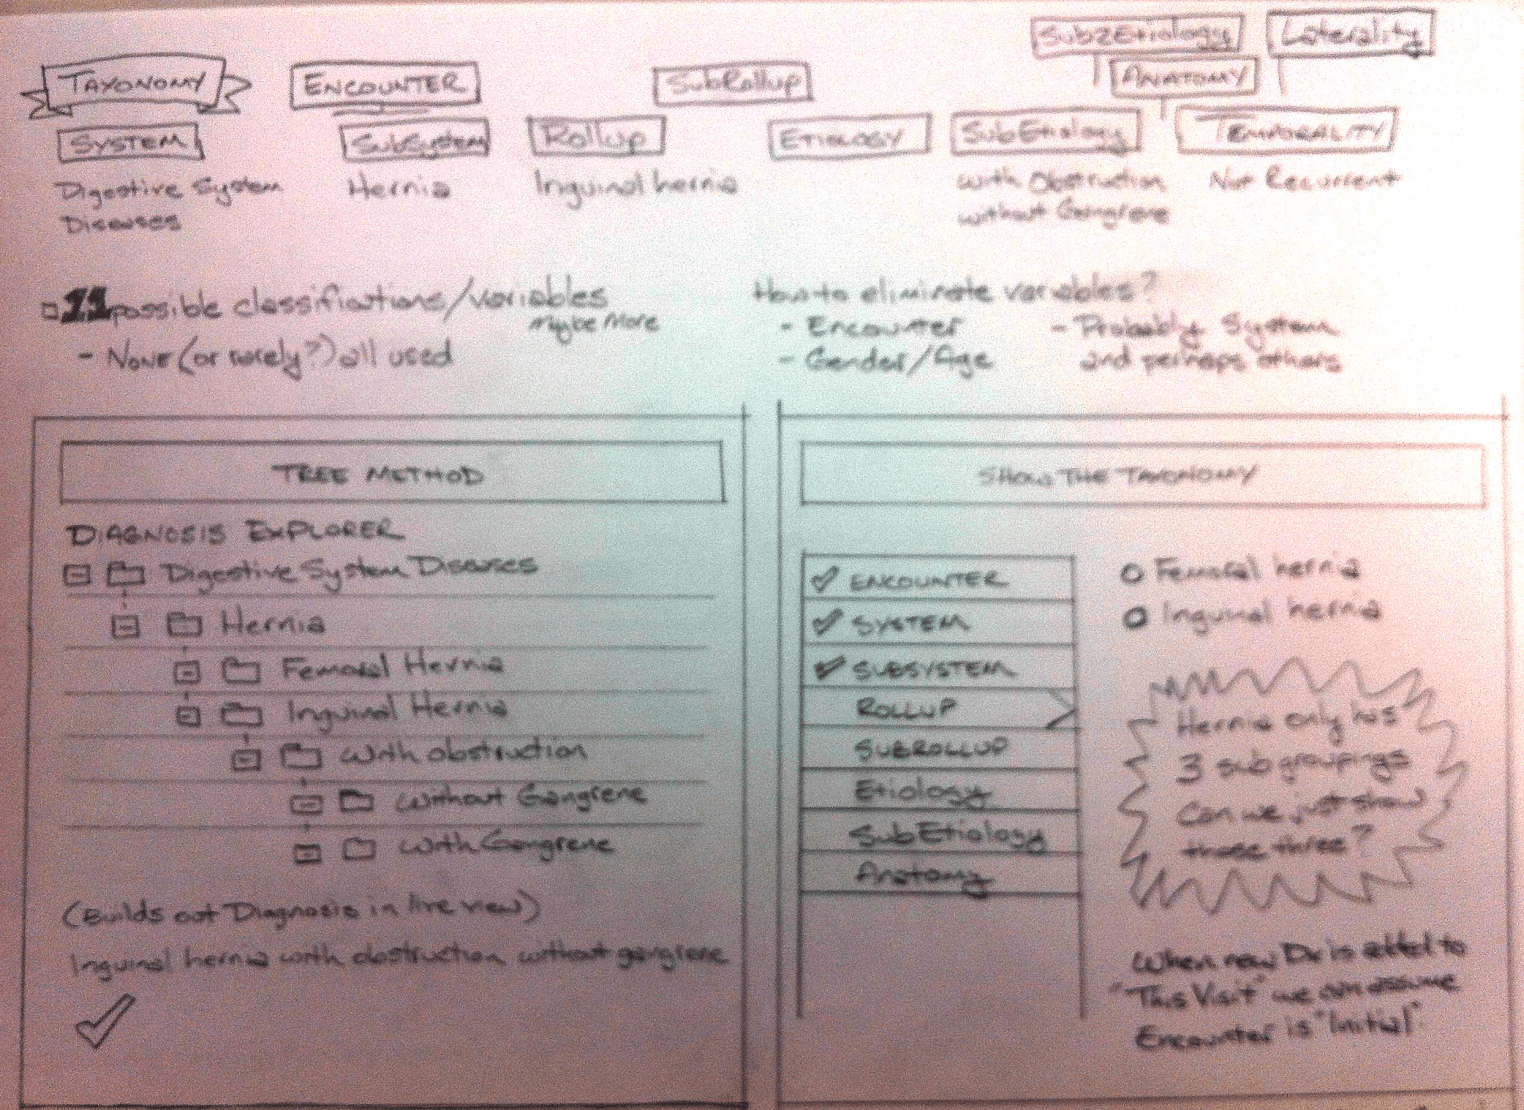 Sub2Etiology Laterality
TAXONOMY ENCOUNTER SubRollup ANATOMY
SYSTEM SubSystem Rollup ETIOLOGY SubEtiology TEMPORALITY
Digestive System Hernia Inguinal hernia with Obstruction Not Recurrent
Diseases without Gangrene
11 possible classifications/variables How to eliminate variables?
Maybe More - Encounter - Probably System
- None (or rarely?) all used - Gender/Age and perhaps others
TREE METHOD
DIAGNOSIS EXPLORER
Digestive System Diseases
Hernia
Femoral Hernia
Inguinal Hernia
With obstruction
Without Gangrene
With Gangrene
(Builds out Diagnosis in live view)
Inguinal hernia with obstruction without gangrene
SHOW THE TAXONOMY
ENCOUNTER
SYSTEM
SUBSYSTEM
ROLLUP
SUBROLLUP
Etiology
SubEtiology
Anatomy
Femoral hernia
Inguinal hernia
Hernia only has
3 sub groupings
Can we just show
those three?
When new Dx is added to
"This Visit" we can assume
Encounter is "Initial"